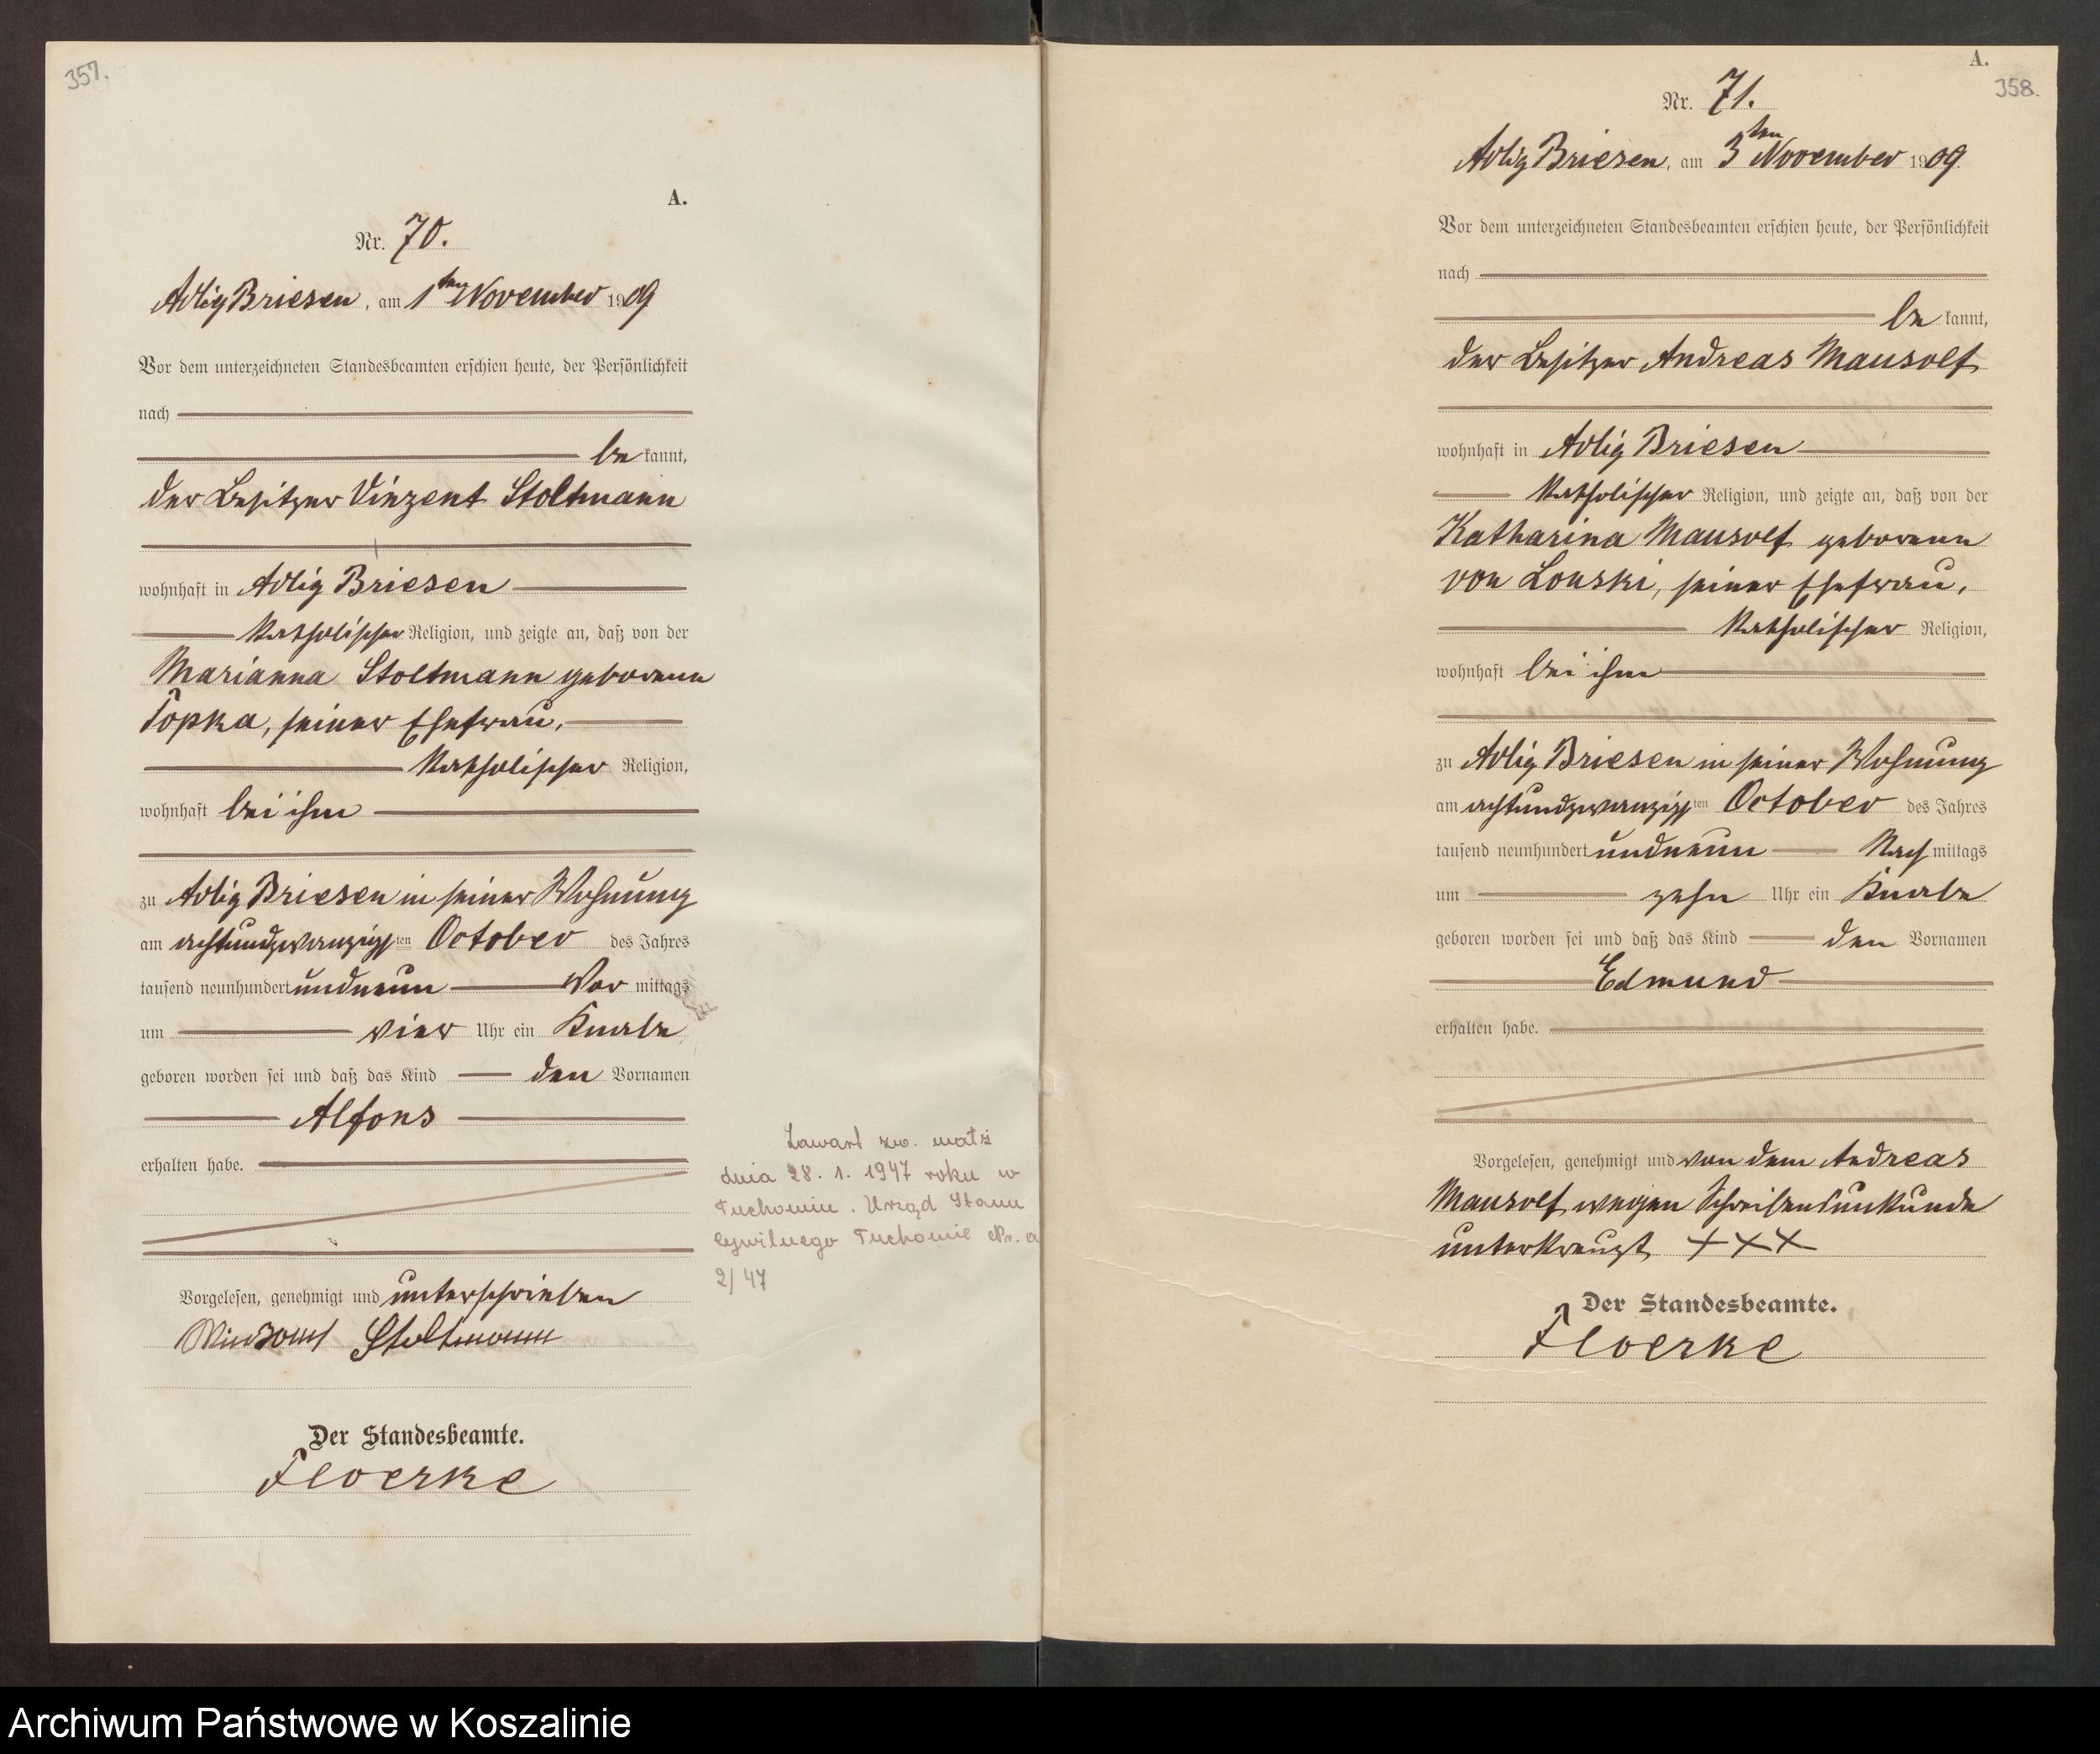 357.
A.
Nr. 70.
Adlig Briesen, am 1ten November 1909
Vor dem unterzeichneten Standesbeamten erschien heute, der Persönlichkeit
nach
be kannt,
der Besitzer Vinzent Stoltmann
wohnhaft in Adlig Briesen
katholischer Religion, und zeigte an, daß von der
Marianna Stoltmann geborene
Topka, seiner Ehefrau,
katholischer Religion,
wohnhaft bei ihm
zu Adlig Briesen in seiner Wohnung
am achtundzwanzigsten October des Jahres
tausend neunhundert undneun Vor mittags
um vier Uhr ein Knabe
geboren worden sei und daß das Kind den Vornamen
Alfons
erhalten habe.
Vorgelesen, genehmigt und unterschrieben
Stoltmann
Der Standesbeamte.
Floerke
Zawarł zw. małż
dnia 28. 1. 1947 roku w
Tuchomiu. Urząd Stanu
Cywilnego Tuchomie Nr. a
2/47
A.
358.
Nr. 71.
Adlig Briesen, am 3ten November 1909.
Vor dem unterzeichneten Standesbeamten erschien heute, der Persönlichkeit
nach
be kannt,
der Besitzer Andreas Mausolf
wohnhaft in Adlig Briesen
katholischer Religion, und zeigte an, daß von der
Katharina Mausolf geborene
von Lonski, seiner Ehefrau,
katholischer Religion,
wohnhaft bei ihm
zu Adlig Briesen in seiner Wohnung
am achtundzwanzigsten October des Jahres
tausend neunhundert undneun Nach mittags
um zehn Uhr ein Knabe
geboren worden sei und daß das Kind den Vornamen
Edmund
erhalten habe.
Vorgelesen, genehmigt und von dem Andreas
Mausolf wegen Schreibensunkunde
unterkreuzt +++
Der Standesbeamte.
Floerke
Archiwum Państwowe w Koszalinie